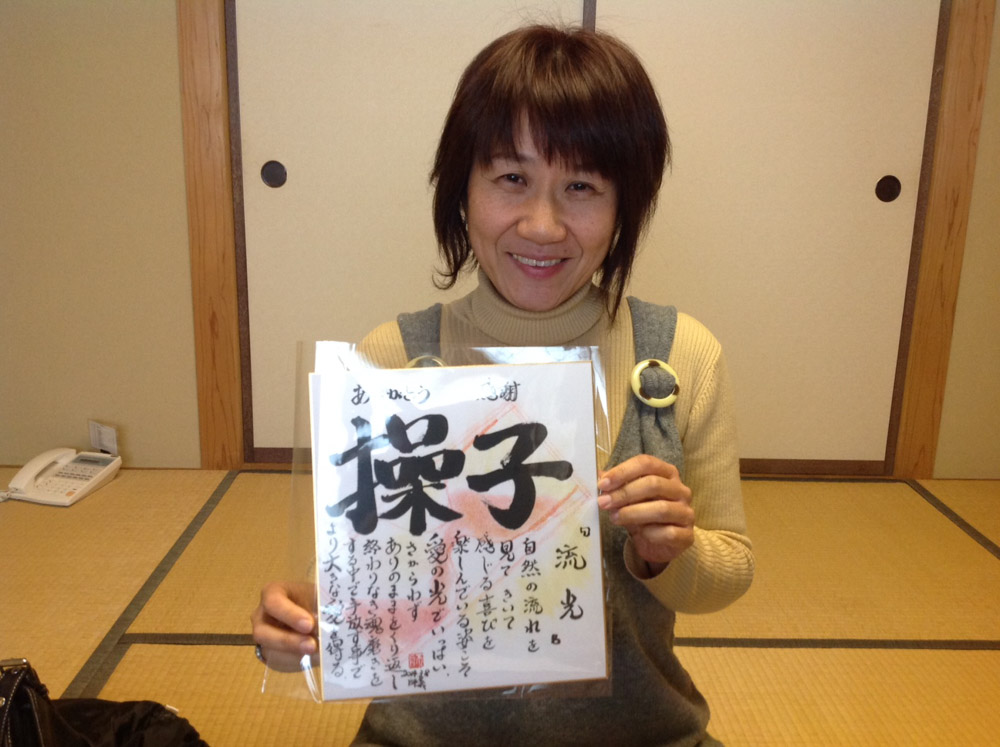 ありがとう 感謝
操子
「流光」
自然の流れを
見て きいて
感じる喜びを
楽しんでいる姿こそ
愛の光でいっぱい
さからわず
ありのままをくり返し
終わりなき魂磨きを
する中で手放す事で
より大きな愛を得る